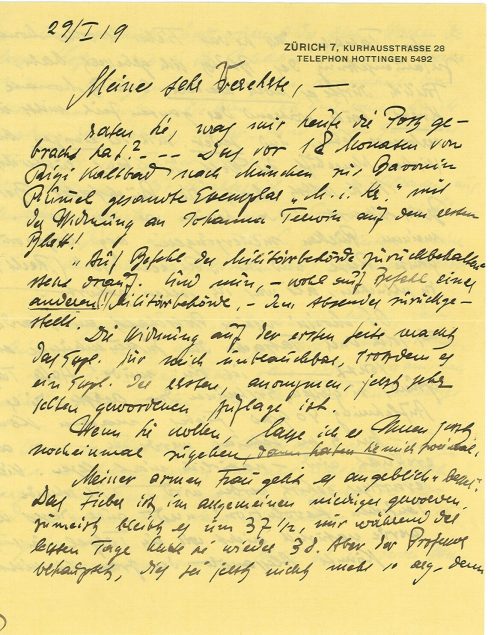 29/I 19
ZÜRICH 7, KURHAUSSTRASSE 28
TELEPHON HOTTINGEN 5492
Meine sehr Verehrte, —
raten Sie, was mir heute die Post ge-
bracht hat? -- Das vor 18 Monaten von
Rigi Kaltbad nach München an Baronin
gesandte Exemplar „M. i. Kr." mit
der Widmung an Johanna Terwin auf dem ersten
Blatt!
„Auf Befehl der Militärbehörde zurückbehalten"
steht drauf. Und nun, - wohl auf Befehl einer
anderen Militärbehörde, - dem Absender zurückge-
stellt.
Die Widmung auf der ersten Seite macht
das Expl. für mich unbrauchbar, trotzdem es
ein Expl. der ersten, anonymen, jetzt sehr
selten gewordenen Auflage ist.
Wenn Sie wollen, lasse ich es Ihnen jetzt
nocheinmal zugehen, dann haben Sie mich
Meiner armen Frau geht es angeblich „besser".
Das Fieber ist im allgemeinen niedriger geworden,
zumeist bleibt es um 37 1/2, nur während der
letzten Tage hatte sie wieder 38. Aber der Professor
behauptet, dies sei jetzt nicht mehr so arg, denn